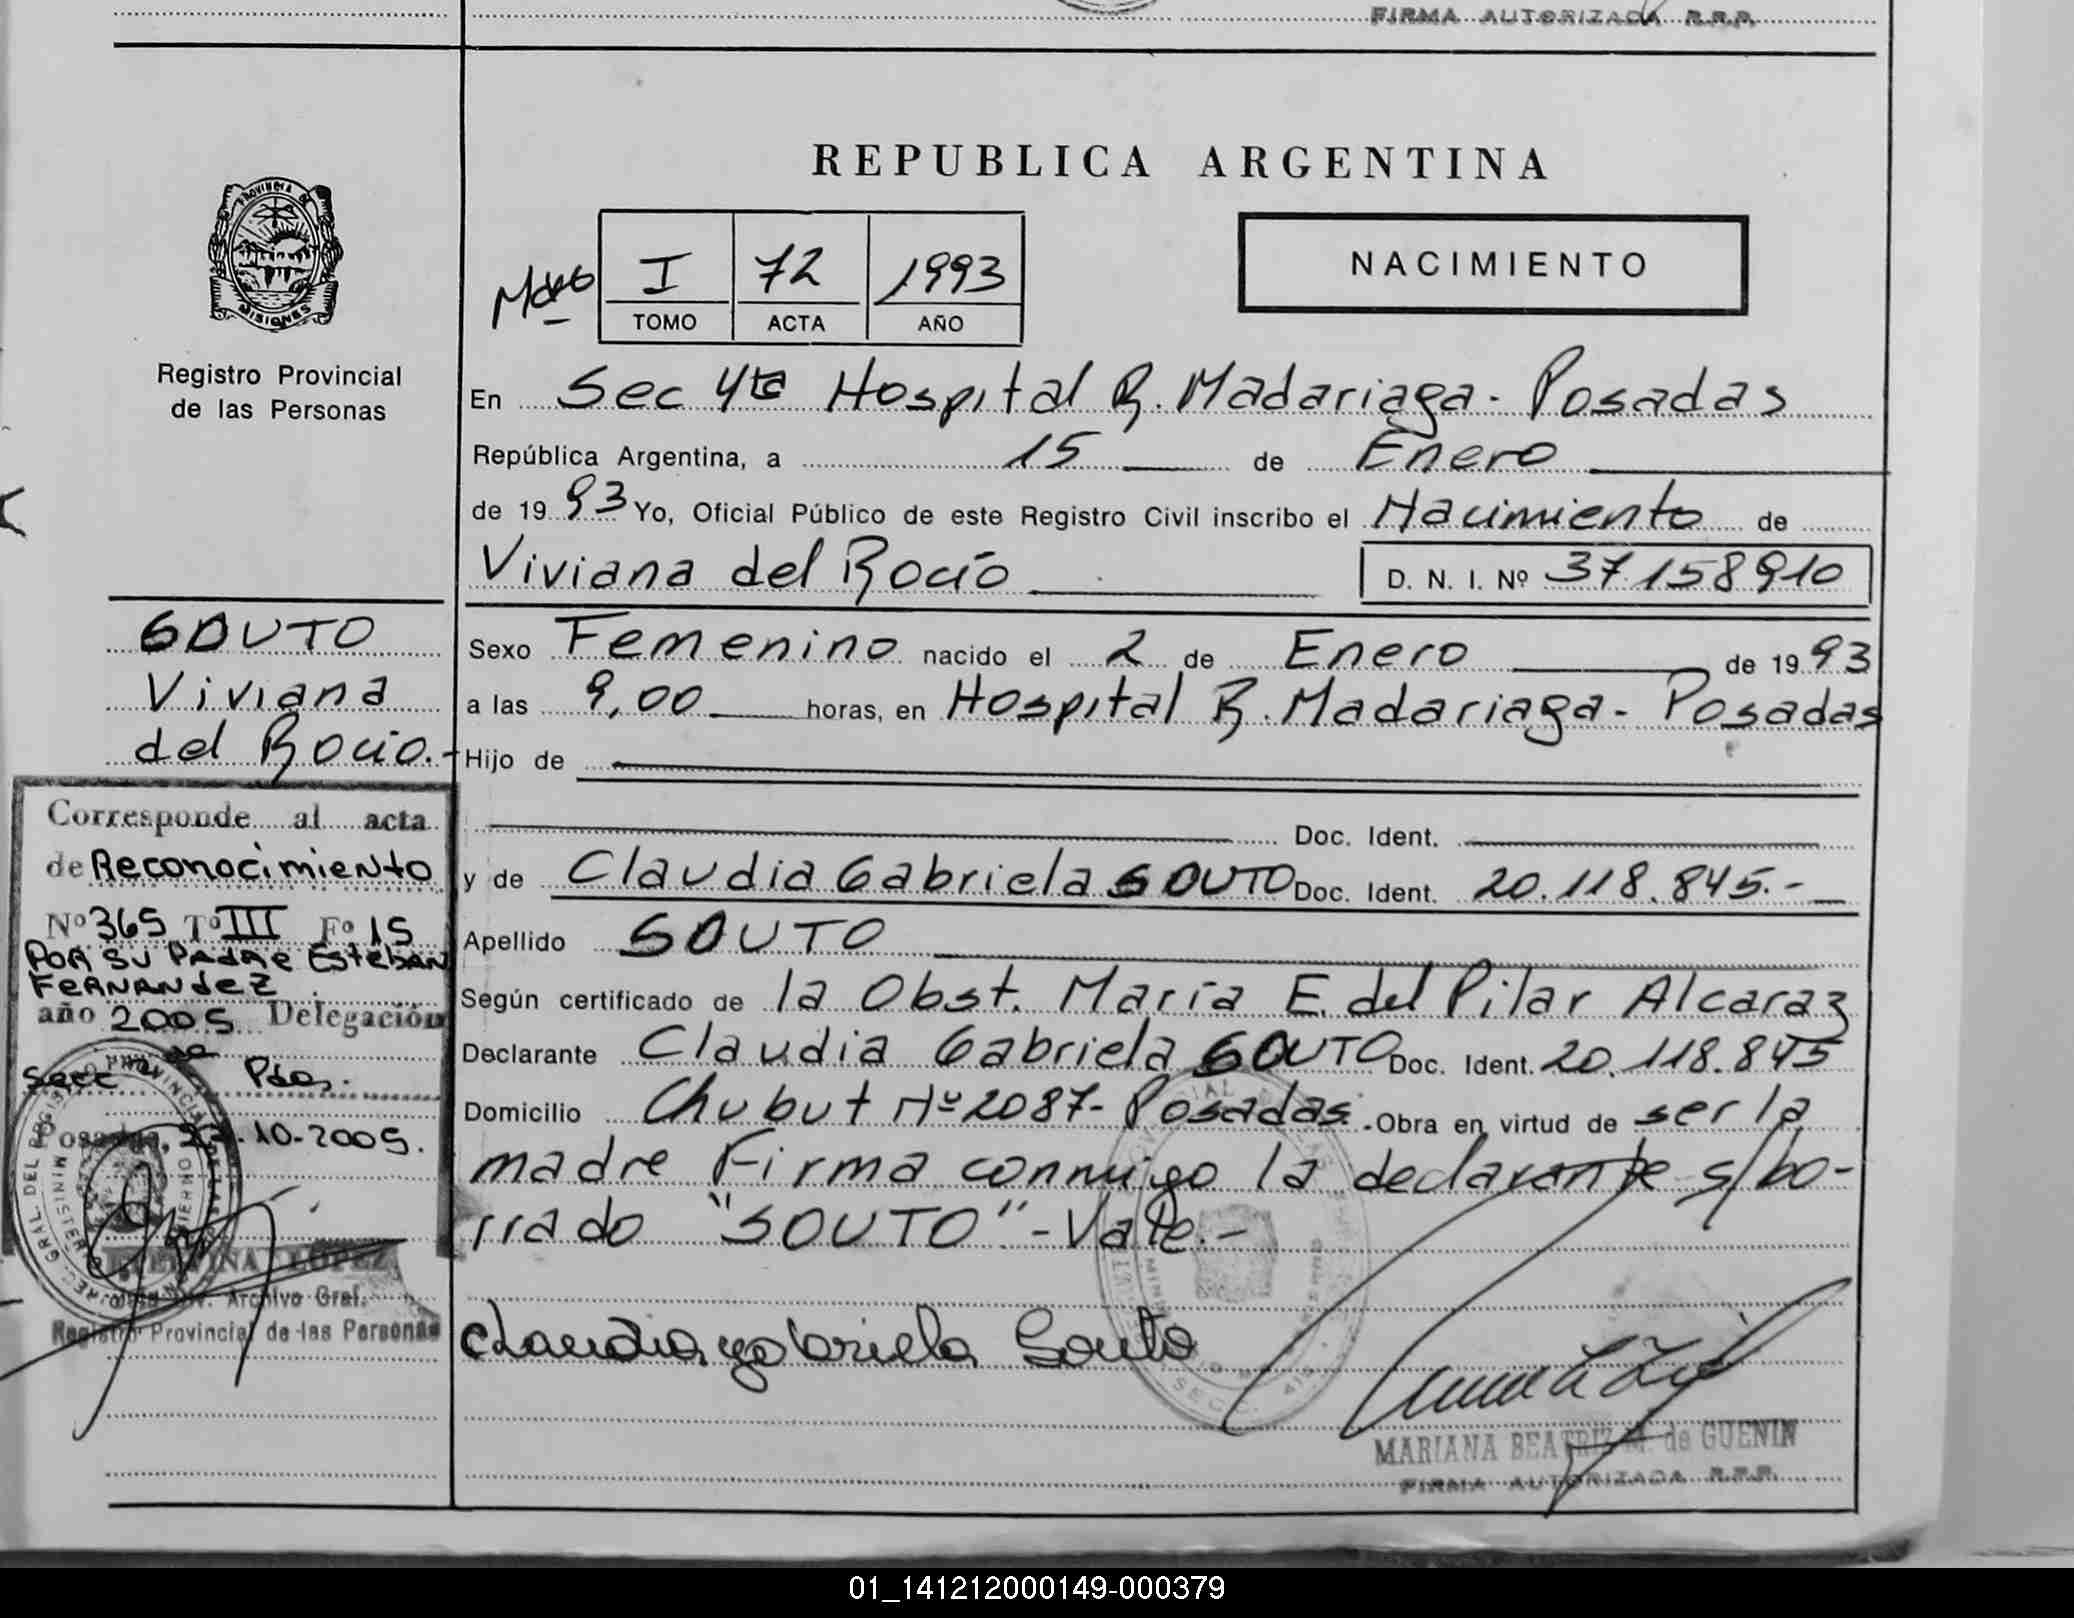 FIRMA AUTORIZADA R.R.P.
REPUBLICA ARGENTINA
PROVINCIA DE
MISIONES
Registro Provincial
de las Personas
I 72 1993
TOMO ACTA AÑO
NACIMIENTO
En Sec 4ta Hospital R. Madariaga - Posadas
República Argentina, a 15 de Enero
de 19 93 Yo, Oficial Público de este Registro Civil inscribo el Nacimiento de
Viviana del Rocío D. N. I. Nº 37.158910
Sexo Femenino nacido el 2 de Enero de 19 93
a las 9,00 horas, en Hospital R. Madariaga - Posadas
Hijo de
Doc. Ident.
y de Claudia Gabriela SOUTO Doc. Ident. 20.118.845.-
Apellido SOUTO
Según certificado de la Obst. María E. del Pilar Alcaraz
Declarante Claudia Gabriela SOUTO Doc. Ident. 20.118.845
Domicilio Chubut Nº 2087 - Posadas. Obra en virtud de ser la
madre Firma conmigo la declarante s/bo-
rrado "SOUTO" - Vale.-
Claudia Gabriela Souto
MARIANA BEATRIZ M. de GUENIN
FIRMA AUTORIZADA R.P.P.
SOUTO
Viviana
del Rocío.-
Corresponde al acta
de Reconocimiento
Nº 365 Tº III Fº 15
POR SU PADRE Esteban
FERNANDEZ
año 2005 Delegación
Secc Pdas.
Posadas, 10-2005.
LOPEZ
Div. Archivo Gral.
Registro Provincial de las Personas
01_141212000149-000379